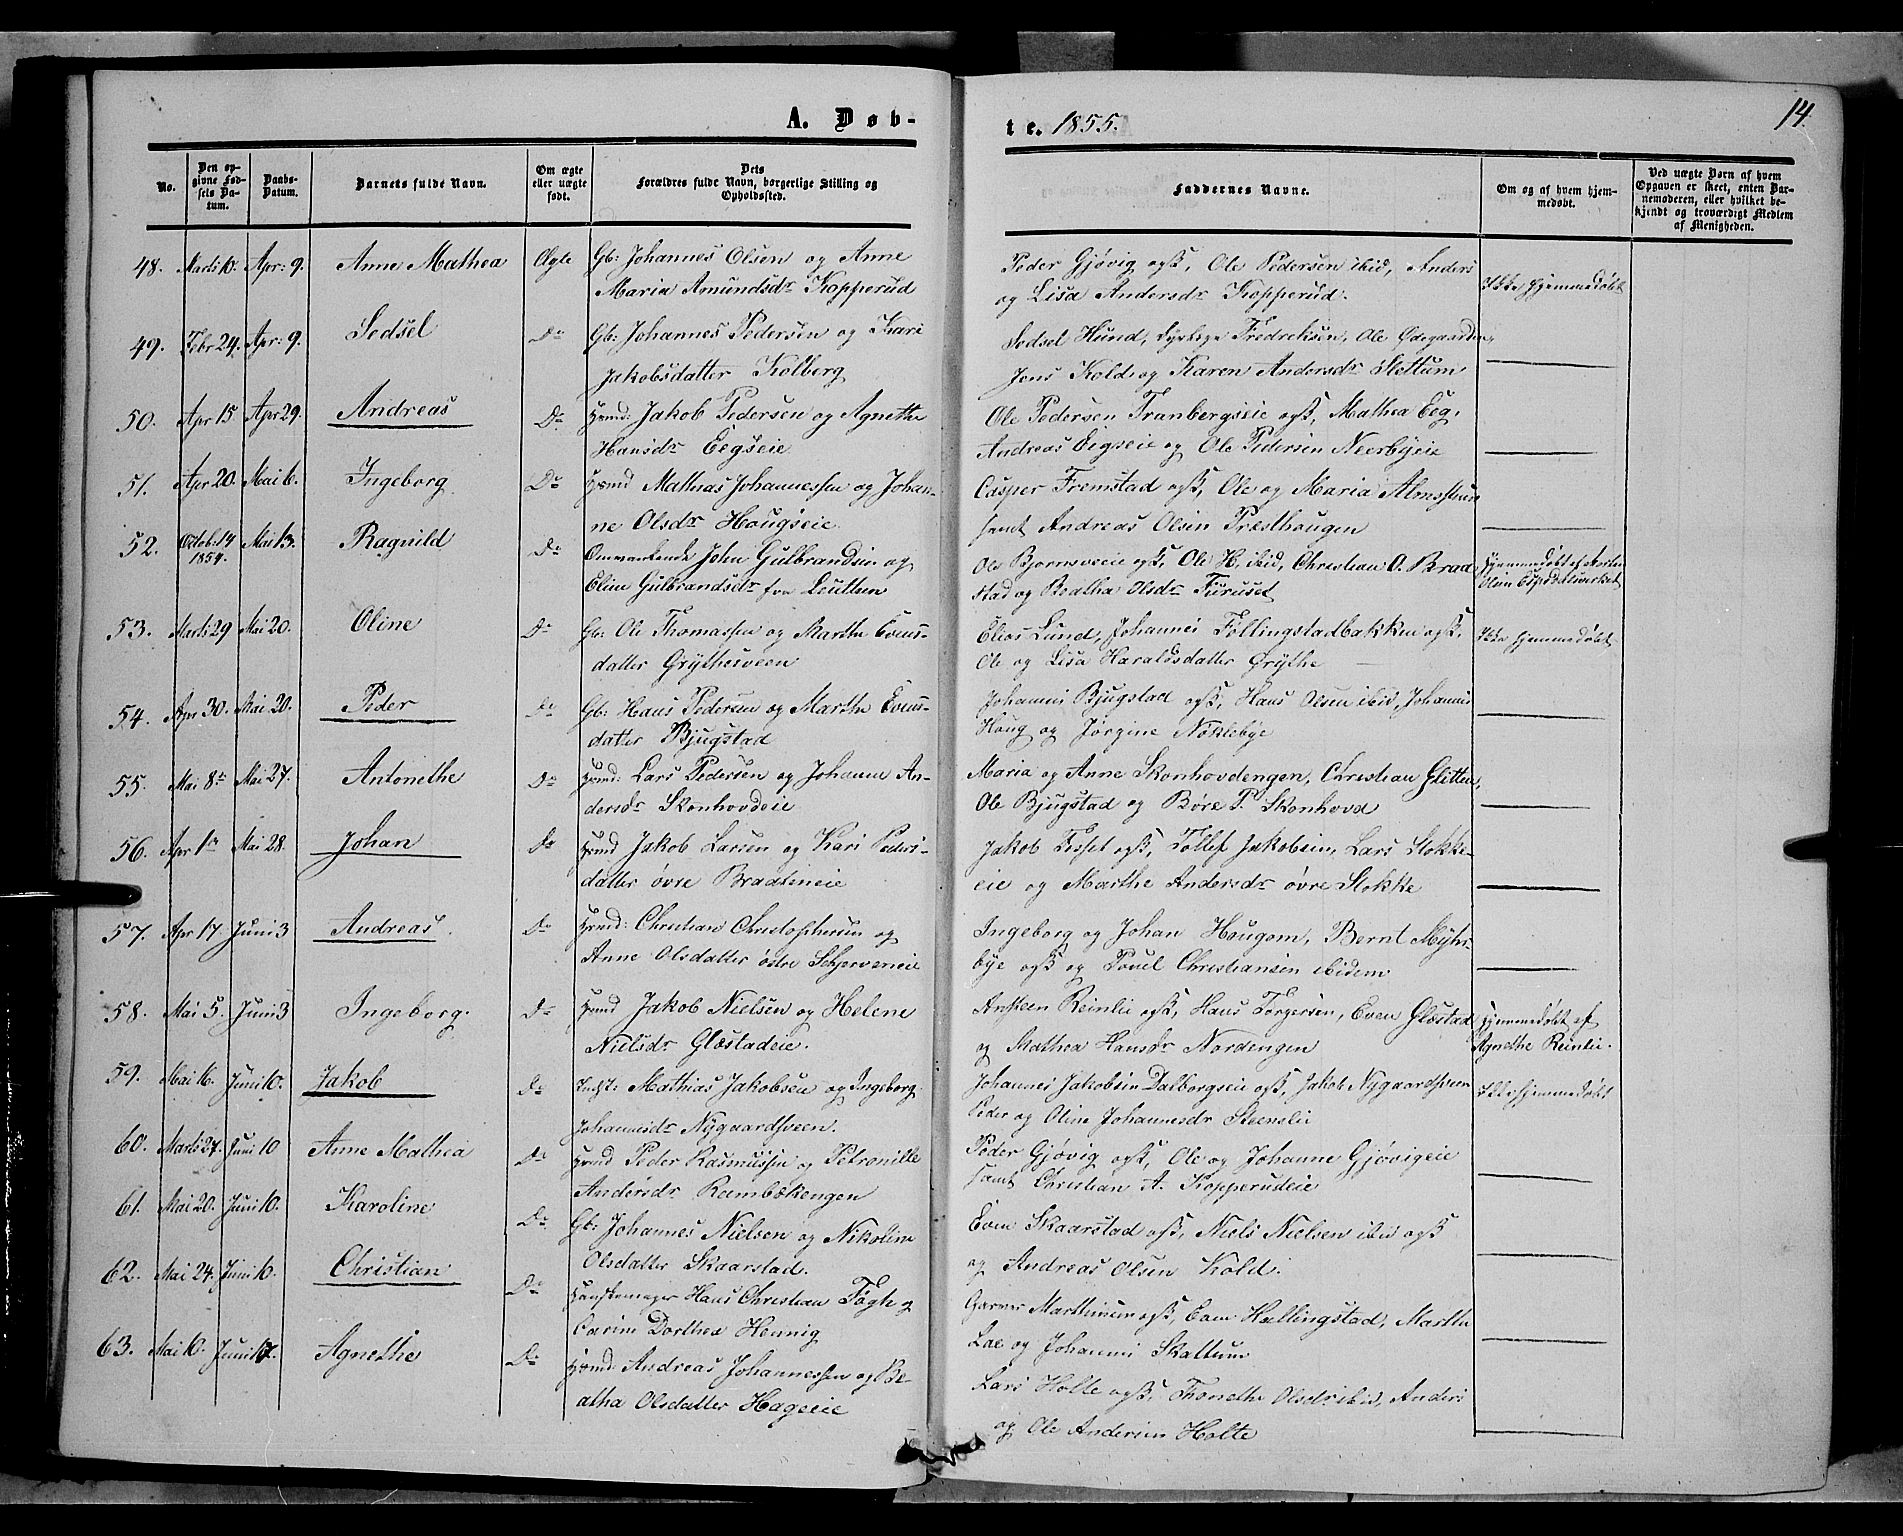 A. Døb-
te. 1855.
14.
No.
Den opgivne Fødsels Datum.
Daabs-Datum.
Barnets fulde Navn.
Om ægte eller uægte født.
Dets Forældres fulde Navn, borgerlige Stilling og Opholdssted.
Faddernes Navne.
Om og af hvem hjemmedøbt.
Ved uægte Børn af hvem Opgaven er skeet, enten Barnemoderen, eller hvilket bekjendt og troværdigt Medlem af Menigheden.
48. Marts 10. Apr: 9. Anne Mathea Ægte Gb: Johannes Olsen og Anne
Maria Amundsdr Kopperud
Peder Gjøvig ogß, Ole Pedersen ibid, Anders
og Lisa Andersdr Kopperud.
Ikke hjemmedøbt
49. Febr 24. Apr: 9. Sedsel Do Gb: Johannes Pedersen og Kari
Jakobsdatter Kolberg
Sedsel Hund, Fredreksen, Ole Ødegaarden,
Jens Kold og Karen Andersdr Slettum
50. Apr 15 Apr 29. Andreas Do Hmd: Jakob Pedersen og Agnethe
Hansdr Eegseie
Ole Pedersen Tranbergseie ogß, Mathea Eeg,
Andreas Eigseie og Ole Pedersen Neerbyeie
51. Apr 20. Mai 6. Ingeborg Do Hmd Mathias Johannessen og Johan-
ne Olsdr Hougseie
Casper Fremstad ogß, Ole og Maria
samt Andreas Olsen Præsthaugen
52. Octob: 14 1854. Mai 13. Ragnild Do Omvankende John Gulbrandsen og
Eline Gulbrandsdr fra
Ole Bjørnsveie ogß, Ole H. ibid, Christian O. Brad
stad og Beatha Olsdr Furuset
Hjemmedøbt af
Olsen
53. Marts 29 Mai 20. Oline Do Gb: Ole Thomassen og Marthe Evens-
datter Grythesveen
Elias Lund, Johannes Føllingstadbakken ogß,
Ole og Lisa Haraldsdatter Grythe
Ikke hjemmedøbt
54. Apr 30. Mai 20. Peder Do Gb: Hans Pedersen og Marthe Evens-
datter Bjugstad
Johannes Bjugstad ogß, Hans Olsen ibid, Johannes
Houg og Jørgine Nøklebye
55. Mai 8de Mai 27. Antonethe Do Hmd: Lars Pedersen og Johanne An-
dersdr Skonhovdeie
Maria og Anne Skonhovdengen, Christian Glitten,
Ole Bjugstad og Børe P. Skonhovd
56. Apr 1ste Mai 28. Johan Do Hmd Jakob Larsen og Kari Peders-
datter øvre Braateneie
Jakob ogß, Tollef Jakobsen, Lars Stokke-
eie og Marthe Andersdr øvre Stokke
57. Apr 17 Juni 3 Andreas. Do Hmd: Christian Christophersen og
Anne Olsdatter østre Schjerveneie
Ingeborg og Johan Hougom, Bernt Myhr-
bye ogß og Povel Christiansen ibidem
58. Mai 5. Juni 3 Ingeborg. Do Hmd Jakob Nielsen og Helene
Nielsdr Glæstadeie.
Ansteen Reinlie ogß, Hans Torgersen, Even Glæstad
og Mathea Hansdr Nordengen
Hjemmedøbt af
Agnethe Reinlie.
59. Mai 16. Juni 10. Jakob Do Indst: Mathias Jakobsen og Ingeborg
Johannesdr Nygaardsveen.
Johannes Jakobsen Dalborgseie ogß, Jakob Nygaardsveen
Peder og Oline Johannesdr Steenslie
Ikke hjemmedøbt
60. Marts 27. Juni 10 Anne Mathea Do Hmd Peder Rasmussen og Petronille
Andersdr Rambækengen
Peder Gjøvig ogß, Ole og Johanne Gjøvigeie
samt Christian A. Kopperudeie
61. Mai 20. Juni 10. Karoline Do Gb: Johannes Nielsen og Nikoline
Olsdatter Skaarstad.
Even Skaarstad ogß, Niels Nielsen ibid ogß
og Andreas Olsen Kold.
62. Mai 24. Juni 10. Christian Do Handskemager Hans Christian Tøgh og
Carine Dorthea Hennig
Garver Marthinsen ogß, Even Hallingstad, Marthe
Lae og Johannes Skattum
63. Mai 10. Juni 17. Agnethe Do Hmd: Andreas Johannessen og Be-
atha Olsdatter Hageeie
Lars Holte ogß, Tonethe Olsdr ibid, Anders
og Ole Andersen Holte